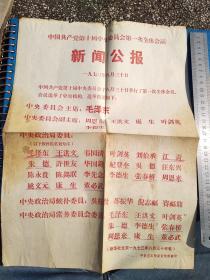 中国共产党第十届中央委员会第一次全体会议
新闻公报
一九七三年八月三十日
中国共产党第十届中央委员会于八月三十日举行了第一次全体会议,
会议选举了中央机构,选举结果如下:
中央委员会主席:毛泽东
中央委员会副主席:周恩来 王洪文 康生 叶剑英
中央政治局委员:
毛泽东 王洪文 韦国清 叶剑英 刘伯承 江青
朱德
陈永贵 陈锡联 李先念 张春桥 周恩来
姚文元 康生 董必武
中央政治局候补委员:吴桂贤 苏振华 倪志福 赛福鼎
中央政治局常务委员会委员:毛泽东 王洪文 叶剑英
朱德 李德生 张春桥
周恩来 康生 董必武